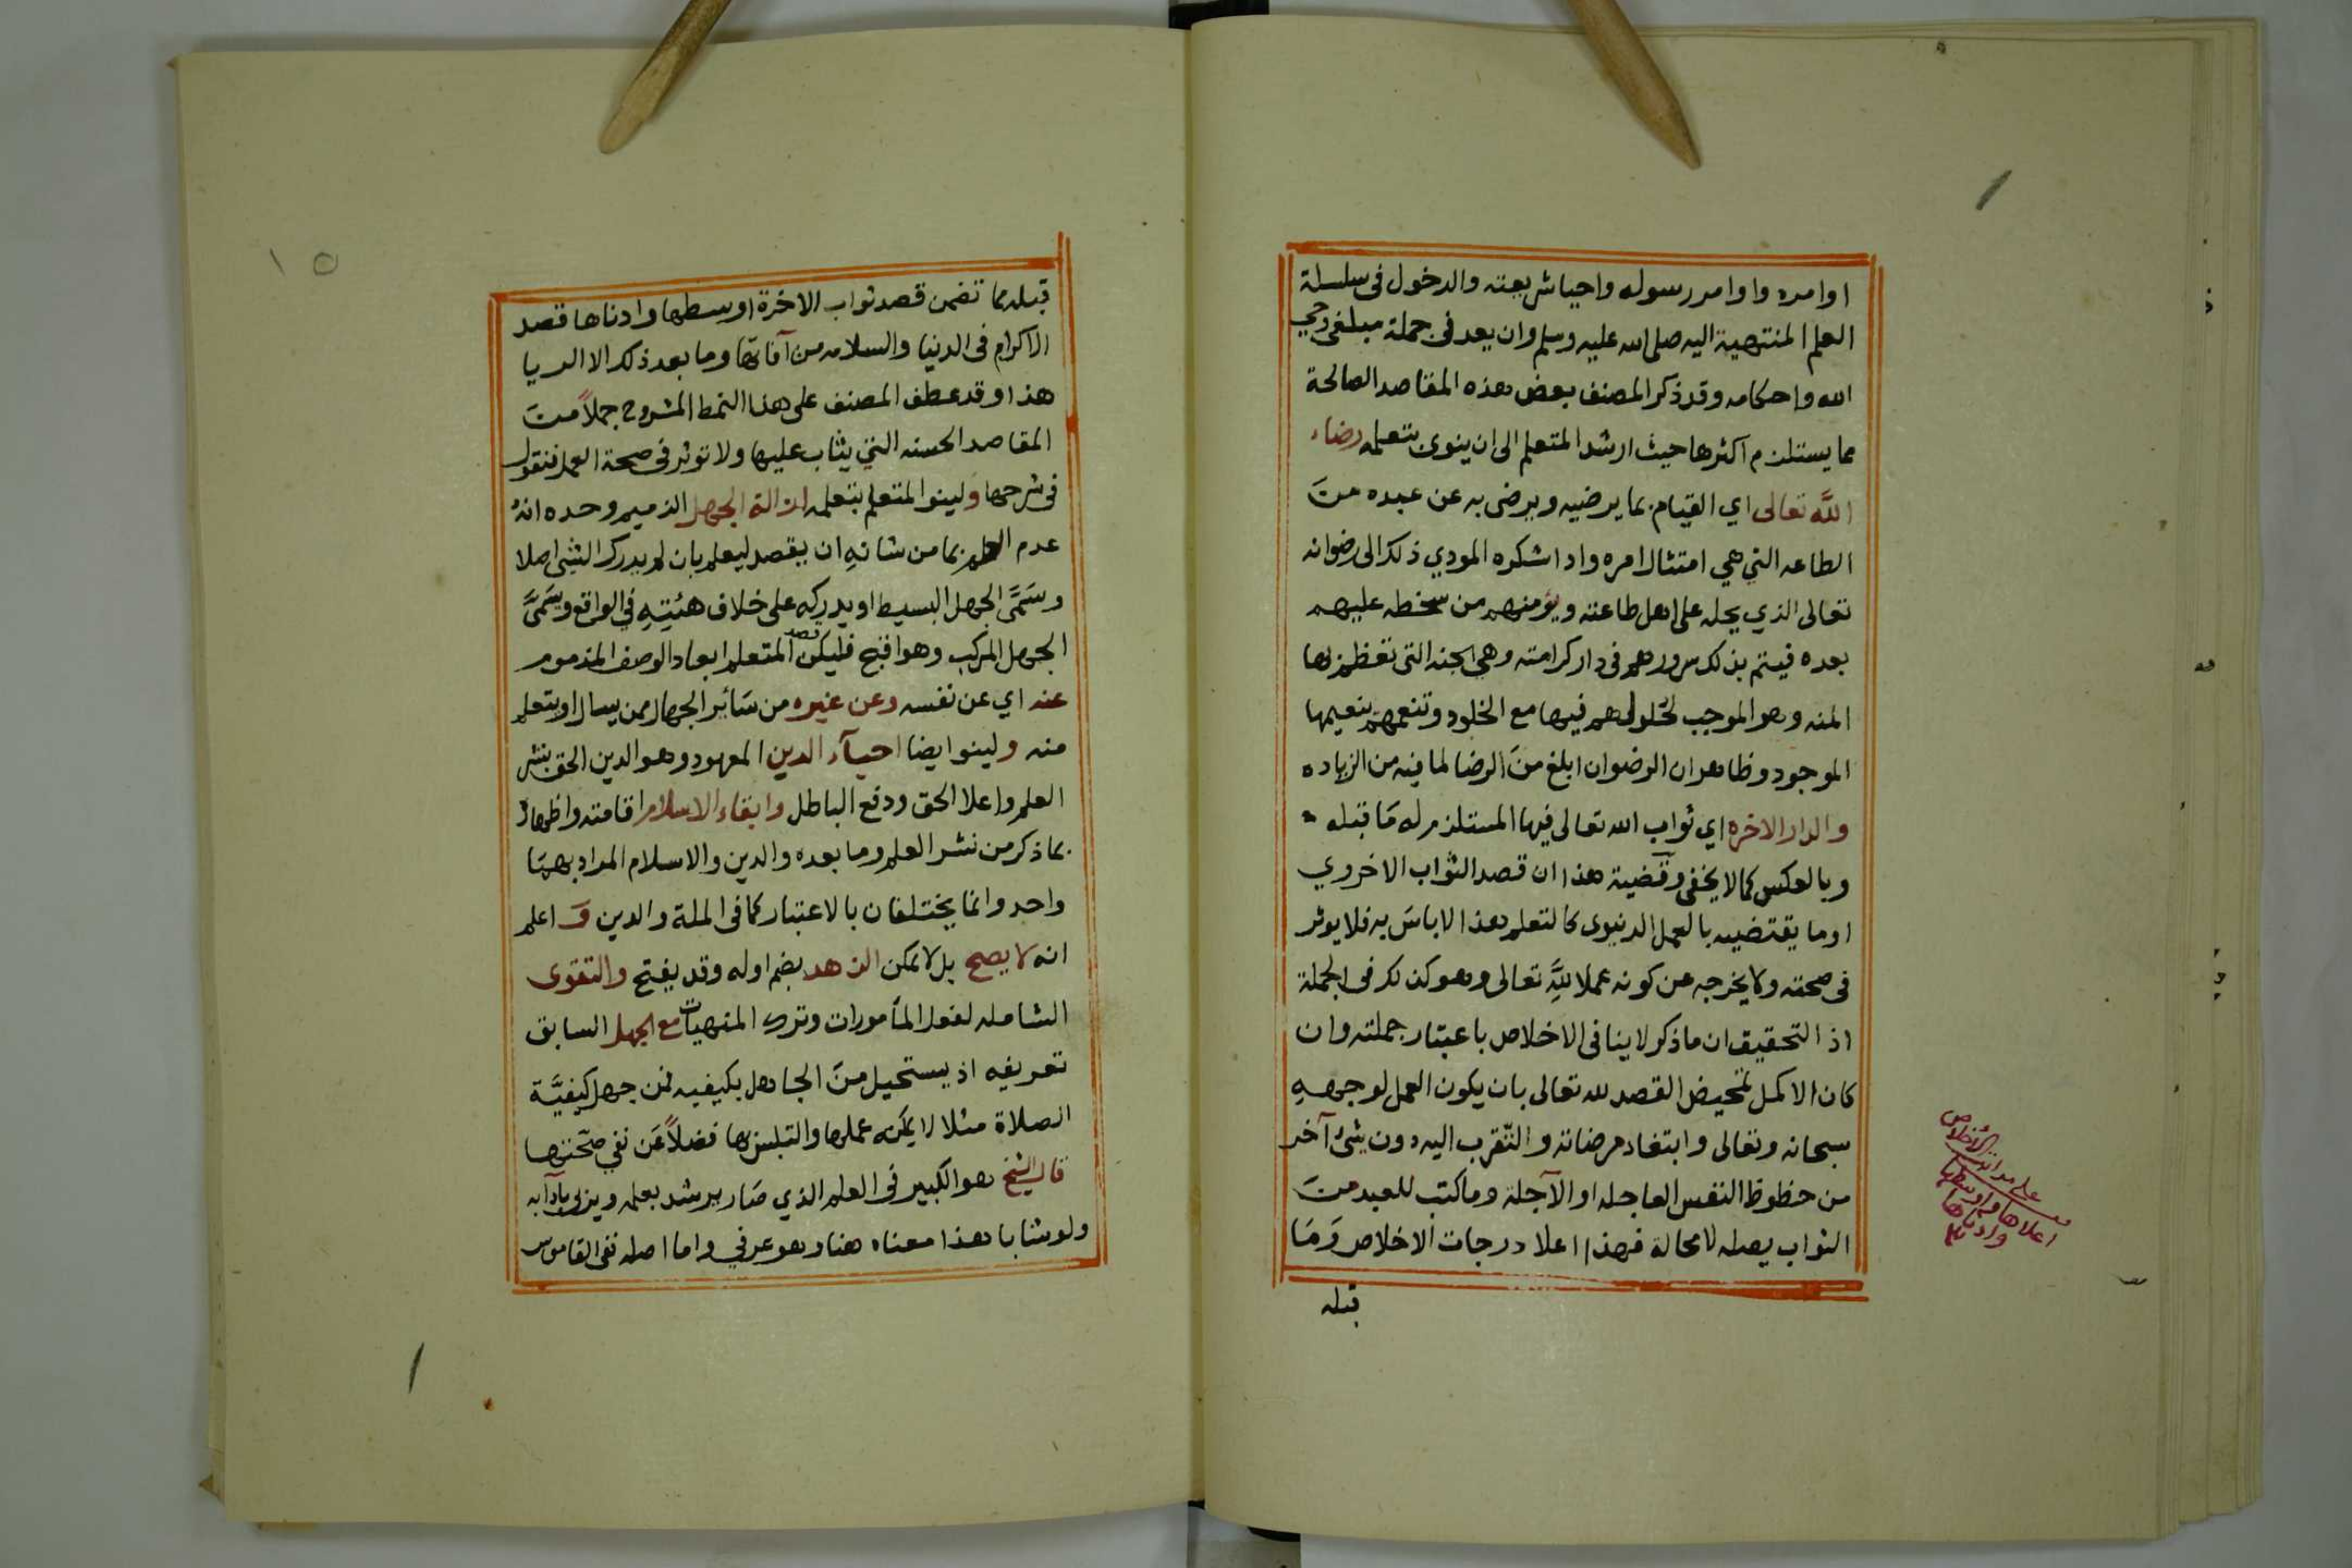 اوامره واوامر رسوله واحيا شريعته والدخول فى سلسلة
العلم المنتهية اليه صلى الله عليه وسلم وان يعد فى جملة مبلغى وحي
الله واحكامه وقد ذكر المصنف بعض هذه المقاصد الصالحة
مما يستلزم اكثرها حيث ارشد المتعلم الى ان ينوى بتعلمه رضاء
الله تعالى اي القيام بما يرضيه ويرضى به عن عبده من
الطاعه التي هي امتثال امره واداشكره المودي ذلك الى رضوانه
تعالى الذي يحله على اهل طاعته ويؤمنهم من سخطه عليهم
بعده فيتم بذلك سرورهم فى دار كرامته وهي الجنه التى تعظم بها
المنه وهو الموجب لحلولهم فيها مع الخلود وتنعمهم بنعيمها
الموجود وظاهر ان الرضوان ابلغ من الرضا لما فيه من الزياده
والدار الاخره اي ثواب الله تعالى فيها المستلزم له ما قبله
وبالعكس كما لا يخفى وقضية هذا ان قصد الثواب الاخروي
اوما يقتضيه بالعمل الدنيوى كالتعلم هذا لاباس به فلا يوثر
فى صحته ولا يخرجه عن كونه عملا لله تعالى وهو كذلك فى الجملة
اذ التحقيق ان ماذكر لا ينافى الاخلاص باعتبار جملته وان
كان الاكمل تمحيض القصد لله تعالى بان يكون العمل لوجهه
سبحانه وتعالى وابتغاء مرضاته والتقرب اليه دون شئ آخر
من حظوظ النفس العاجله او الآجلة وما كتب للعبد من
الثواب يصله لا محالة فهذا اعلا درجات الاخلاص وما
قبله
الاخلاص
اعلاها واوسطها
وادناها
١٥
قبله مما تضمن قصد ثواب الاخرة اوسطها وادناها قصد
الاكرام فى الدنيا والسلامه من آفاتها وما بعد ذلك الا الريا
هذا وقد عطف المصنف على هذا النمط المشروح جملاً من
المقاصد الحسنه التي يثاب عليها ولا توثر فى صحة العمل فنقول
فى شرحها ولينو المتعلم بتعلمه ازالة الجهل الذميم وحده انه
عدم العلم بما من شانه ان يقصد ليعلم بان لم يدرك الشئ اصلا
وسمى الجهل البسيط او يدركه على خلاف هئيته في الواقع ويسمى
الجهل المركب وهو اقبح فليكن قصد المتعلم ابعاد الوصف المذموم
عنه اي عن نفسه وعن غيره من سائر الجهال ممن يسال او يتعلم
منه ولينو ايضا احيآء الدين المعهود وهو الدين الحق بنشر
العلم واعلا الحق ودفع الباطل وابقاء الاسلام اقامته واظهاره
بما ذكر من نشر العلم وما بعده والدين والاسلام المراد بهما
واحد وانما يختلفان بالاعتبار كما فى الملة والدين و اعلم
انه لا يصح بل لا يمكن الزهد بضم اوله وقد يفتح والتقوى
الشامله لفعل المأمورات وترك المنهيات مع الجهل السابق
تعريفه اذ يستحيل من الجاهل بكيفيه فمن جهل كيفية
الصلاة مثلا لا يمكنه عملها والتلبس بها فضلاً عن نفي صحتها
قال الشيخ هو الكبير فى العلم الذي صار يرشد بعلمه ويزلى بآدابه
ولو شابا هذا معناه هنا وهو عرفي واما اصله ففى القاموس